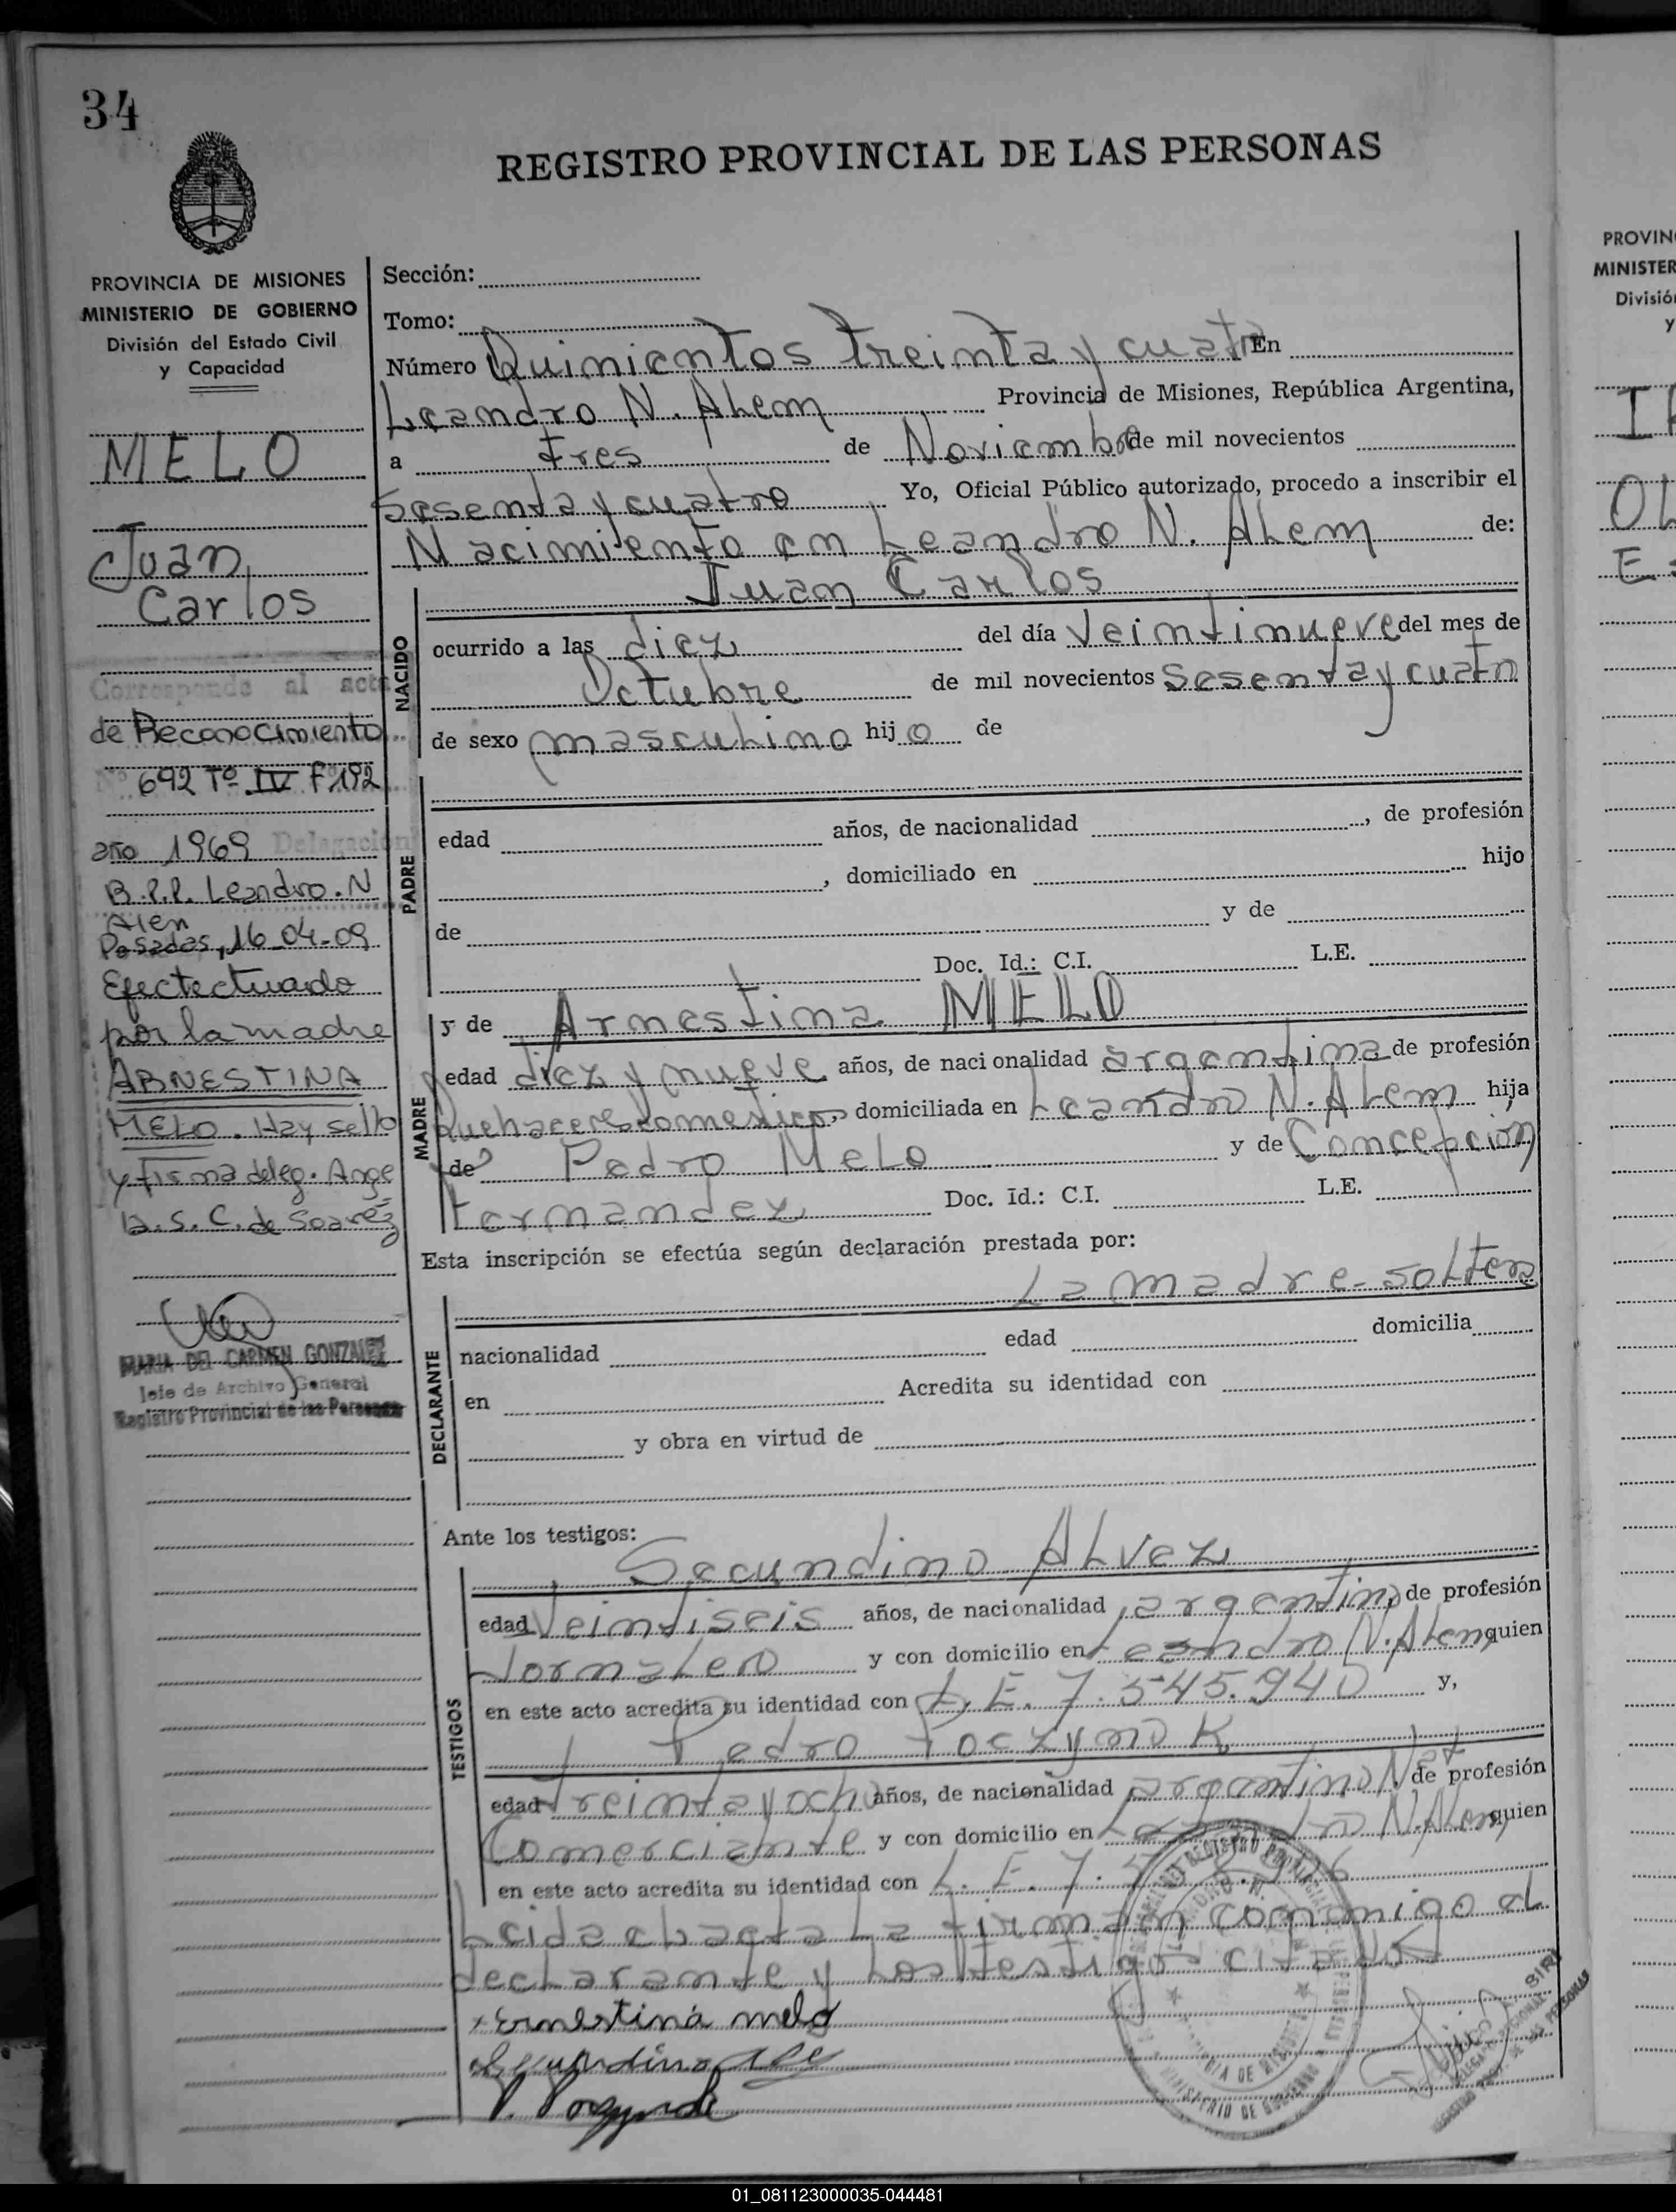 34
REGISTRO PROVINCIAL DE LAS PERSONAS
PROVINCIA DE MISIONES
MINISTERIO DE GOBIERNO
División del Estado Civil
y Capacidad
MELO
Juan
Carlos
Corresponde al acta
de Reconocimiento
692 Tº IV F 192
año 1969 Delegación
B.P.P. Leandro. N
Alen
Posadas, 16-04-09
Efectectuado
por la madre
ARNESTINA
MELO. Hay sello
y firma deleg. Ange
la. S. C. de Soarez
MARIA DEL CARMEN GONZALEZ
Jefe de Archivo General
Registro Provincial de las Personas
Sección:
Tomo:
Número Quinientos treinta y cuatro En
Leandro N. Alem Provincia de Misiones, República Argentina,
a tres de Noviembre de mil novecientos
Sesenta y cuatro Yo, Oficial Público autorizado, procedo a inscribir el
Nacimiento en Leandro N. Alem de:
Juan Carlos
NACIDO
ocurrido a las diez del día Veintinueve del mes de
Octubre de mil novecientos Sesenta y cuatro
de sexo masculino hijo de
PADRE
edad años, de nacionalidad , de profesión
, domiciliado en hijo
de y de
Doc. Id.: C.I. L.E.
MADRE
y de Arnestina MELO
edad diez y nueve años, de nacionalidad argentina de profesión
Quehaceres domestico, domiciliada en Leandro N. Alem hija
de Pedro Melo y de Concepción
Fernandez Doc. Id.: C.I. L.E.
Esta inscripción se efectúa según declaración prestada por:
La madre-soltera
DECLARANTE
nacionalidad edad domicilia
en Acredita su identidad con
y obra en virtud de
Ante los testigos:
Secundino Alvez
TESTIGOS
edad Veintiseis años, de nacionalidad argentino de profesión
Jornalero y con domicilio en Leandro N. Alem, quien
en este acto acredita su identidad con L.E. 7.545.940 y,
Pedro
edad treinta y ocho años, de nacionalidad argentino Nat de profesión
Comerciante y con domicilio en Leandro N. Alem, quien
en este acto acredita su identidad con L.E. 7.
Leida el acta la firman conmigo el
declarante y los testigos citados
Ernestina melo
Secundino
P.
01_081123000035-044481